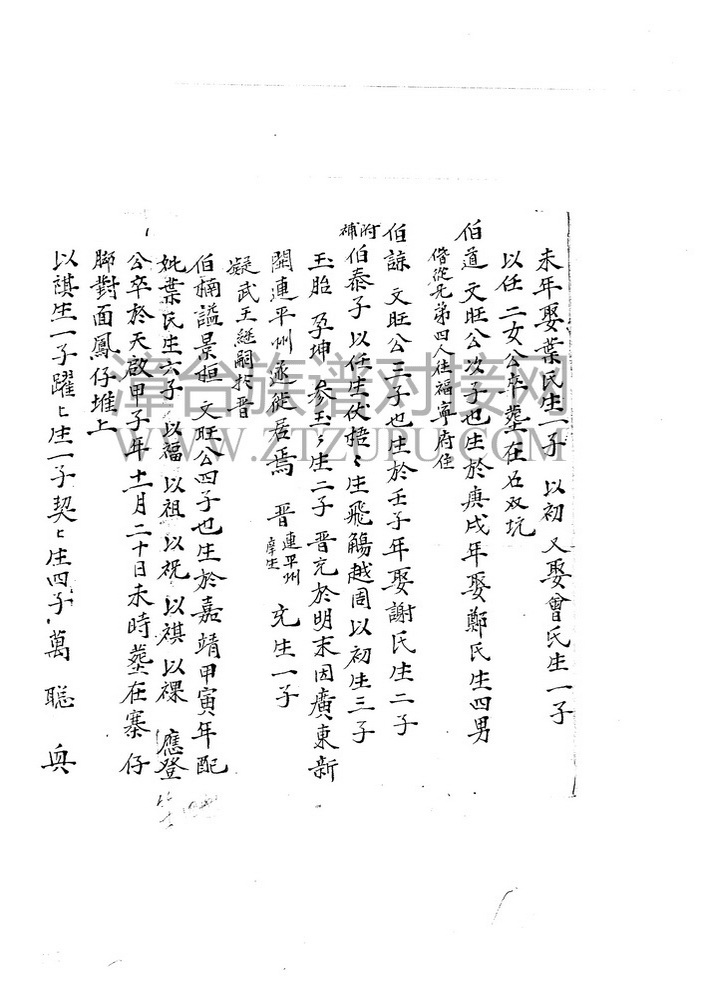 未年娶葉氏生一子 以初 又娶曾氏生一子
以任 二女公卒塟在石双坑
伯道 文旺公次子也生於庚戌年娶鄭氏生四男
偕從兄弟四人住福寧府住
伯諒 文旺公三子也生於壬子年娶謝氏生二子
附補
伯泰子以任生伏悟〻生飛觴越周以初生三子
玉胎 孕坤 參玉〻生二子 晋充於明末因廣東新
開連平州遂徙居焉 晋 連平州庠生 充生一子
凝武王継嗣扵晋
伯楠諡景桓 文旺公四子也生於嘉靖甲寅年配
妣葉氏生六子 以福以祖以祝以祺以祼 應登
公卒於天啟甲子年十一月二十日未時塟在寨仔
腳對面鳳仔堆上
以祺生一子躍〻生一子契〻生四子 萬 聡 興
漳台族谱对接网
WWW.ZTZUPU.COM